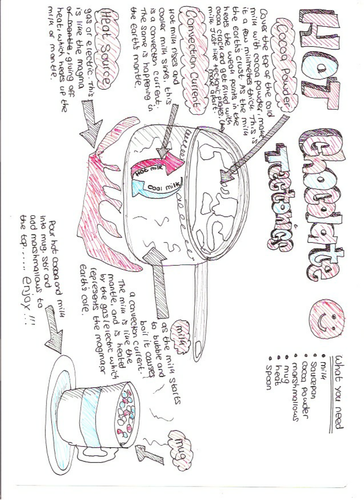 HOT Chocolate
Tectonics
What you need
• milk
• saucepan
• cocoa powder
• marshmallows
• mug
• heat
• spoon
Cocoa Powder
Cover the top of the cold
milk with cocoa powder, make
it a few millimetres thick. This is
the earth's crust. As the milk
heats, the weak points in the
cocoa crack and get filled with
milk just like tectonic plates, they
Convection Current
Hot milk rises and
cooler milk sinks, this
is a convection current.
This is happening in
the Earth's mantle.
Heat Source
gas or electric. This
is like the magma
or mantle, giving off
heat, which heats up the
milk or mantle.
Hot milk
cool milk
milk
as the milk starts
to bubble and
boil it causes
a convection current.
The milk is like the
mantle, and is heated
by the gas/electric which
represents the magma or
Earth's core.
mug
Pour hot cocoa and milk
into mug, stir and
add marshmallows to
the top..... enjoy!!!